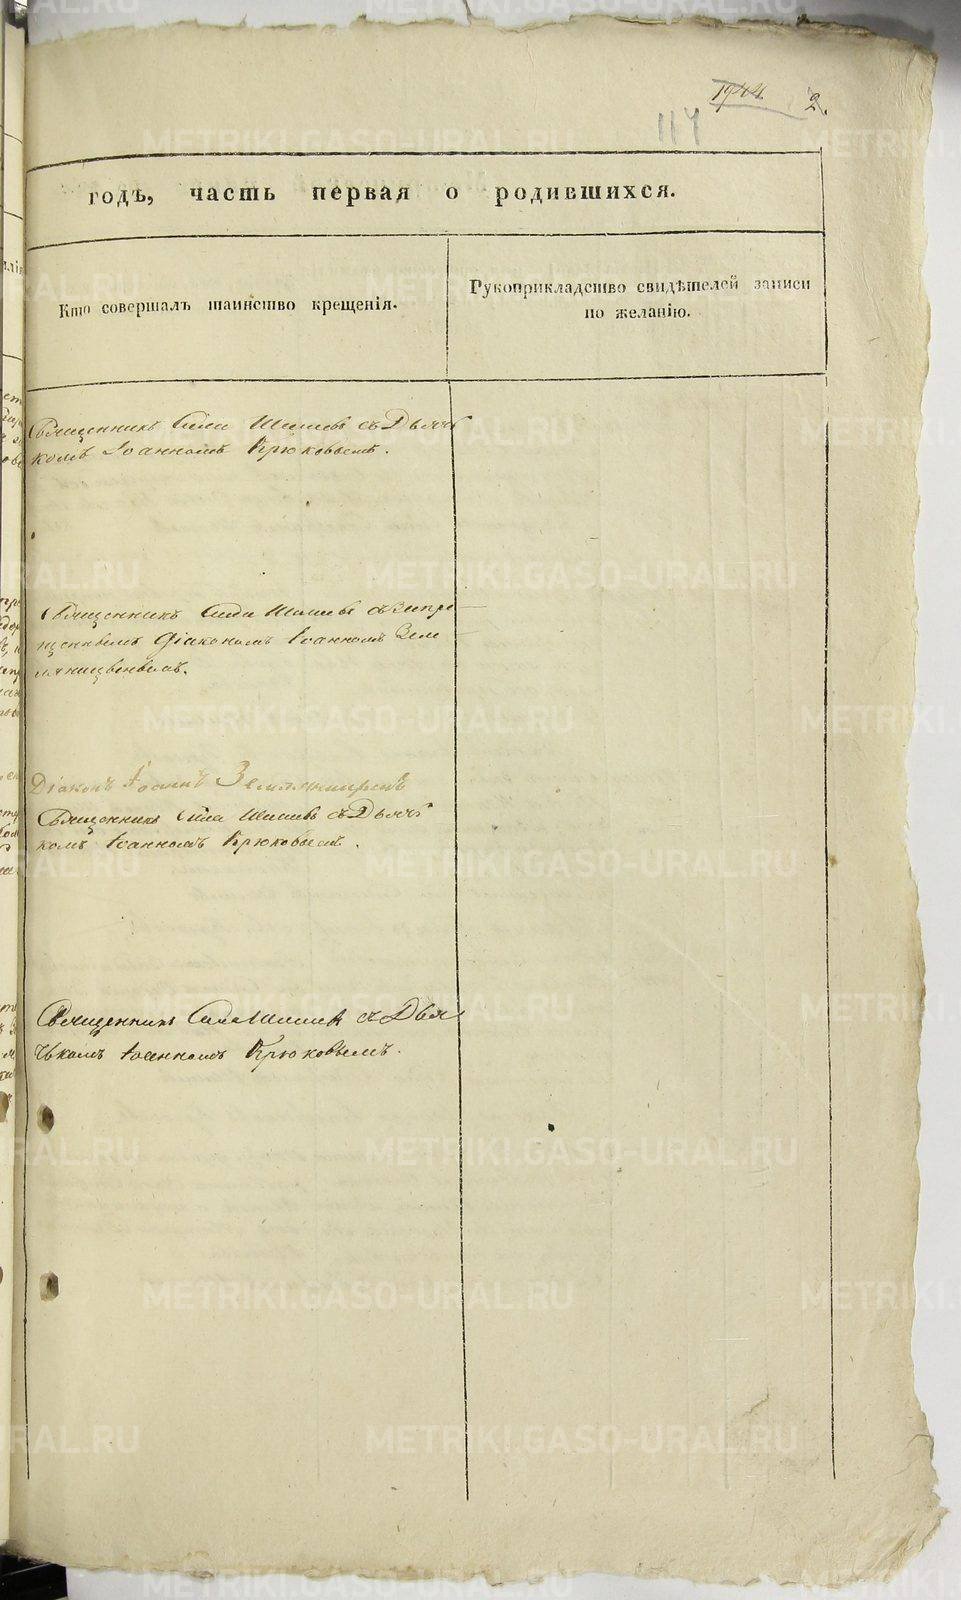 1944 2.
114
годѣ, часть первая о родившихся.
Кто совершалъ таинство крещенія.
Рукоприкладство свидѣтелей записи
по желанію.
Священникъ Сила Шишевъ съ Дьяч
комъ Іоанномъ Крюковымъ.
Священникъ Сила Шишевъ съ Запре
щеннымъ Діакономъ Іоанномъ Земляницынымъ.
Діаконъ Іоаннъ
Священникъ Сила Шишевъ съ Дьяч
комъ Іоанномъ Крюковымъ.
Священникъ Сила Шишевъ съ Дья
чькомъ Іоанномъ Крюковымъ.
METRIKI.GASO-URAL.RU